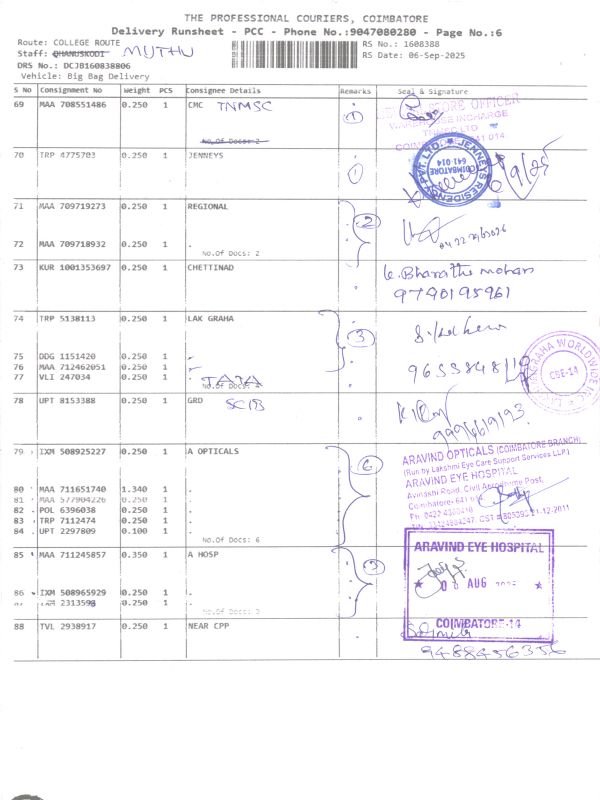 THE PROFESSIONAL COURIERS, COIMBATORE
Delivery Runsheet - PCC - Phone No.:9047080280 - Page No.:6
Route: COLLEGE ROUTE
RS No.: 1608388
Staff: DHANUSKODI MUTHU
RS Date: 06-Sep-2025
DRS No.: DCJB160838806
Vehicle: Big Bag Delivery
S No Consignment No Weight PCS Consignee Details Remarks Seal & Signature
69 MAA 708551486 0.250 1 CMC TNMSC 1
STORE OFFICER
WAREHOUSE INCHARGE
TNMSC LTD
COIMBATORE 641 014
No.Of Docs: 2
70 TRP 4775703 0.250 1 JENNEYS 1
JENNEYS RESIDENCY PVT. LTD
COIMBATORE
641-014
71 MAA 709719273 0.250 1 REGIONAL 2
72 MAA 709718932 0.250 1 .
No.Of Docs: 2
73 KUR 1001353697 0.250 1 CHETTINAD
K. Bharathi mohan
9790195961
74 TRP 5138113 0.250 1 LAK GRAHA 3
75 DDG 1151420 0.250 1 .
76 MAA 712462051 0.250 1 .
77 VLI 247034 0.250 1 . TATA
WORLDWIDE
CBE-14
78 UPT 8153388 0.250 1 GRD SCIB
79 IXM 508925227 0.250 1 A OPTICALS 6
ARAVIND OPTICALS (COIMBATORE BRANCH)
(Run by Lakshmi Eye Care Support Services LLP)
ARAVIND EYE HOSPITAL
Avinashi Road, Civil Aerodrome Post,
Coimbatore- 641 014
80 MAA 711651740 1.340 1 .
81 MAA 577904226 0.250 1 .
82 POL 6396038 0.250 1 .
83 TRP 7112474 0.250 1 .
84 UPT 2297809 0.100 1 .
No.Of Docs: 6
85 MAA 711245857 0.350 1 A HOSP 3
ARAVIND EYE HOSPITAL
AUG
COIMBATORE-14
86 IXM 508965929 0.250 1 .
87 2313598 0.250 1 .
No.Of Docs: 3
88 TVL 2938917 0.250 1 NEAR CPP
9488456356